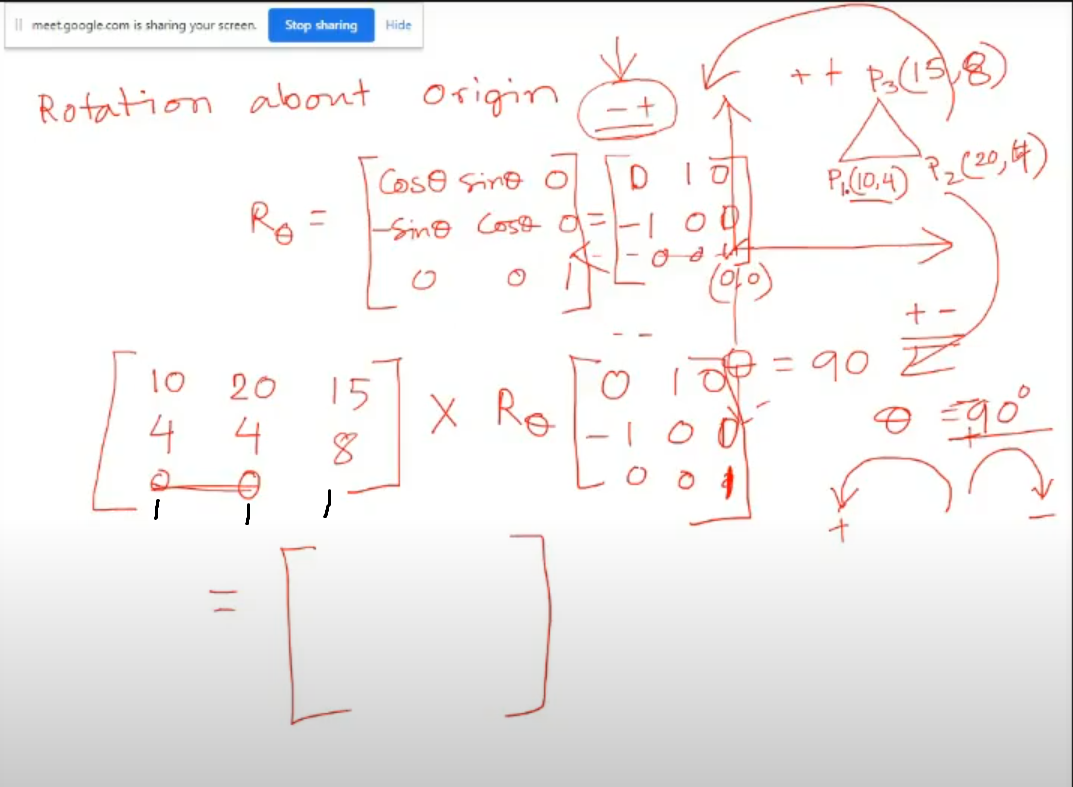 meet.google.com is sharing your screen. Stop sharing Hide
Rotation about origin - +
+ + P₃(15,8)
P₁(10,4) P₂(20,4)
Rθ = [cosθ sinθ 0] = [0 1 0]
[-sinθ cosθ 0] [-1 0 0]
[0 0 1] [0 0 1]
(0,0)
+ -
- -
θ = 90
θ = 90°
+ -
[10 20 15] X Rθ [0 1 0]
[4 4 8] [-1 0 0]
[0 0] [0 0 1]
1 1 1
= [ ]